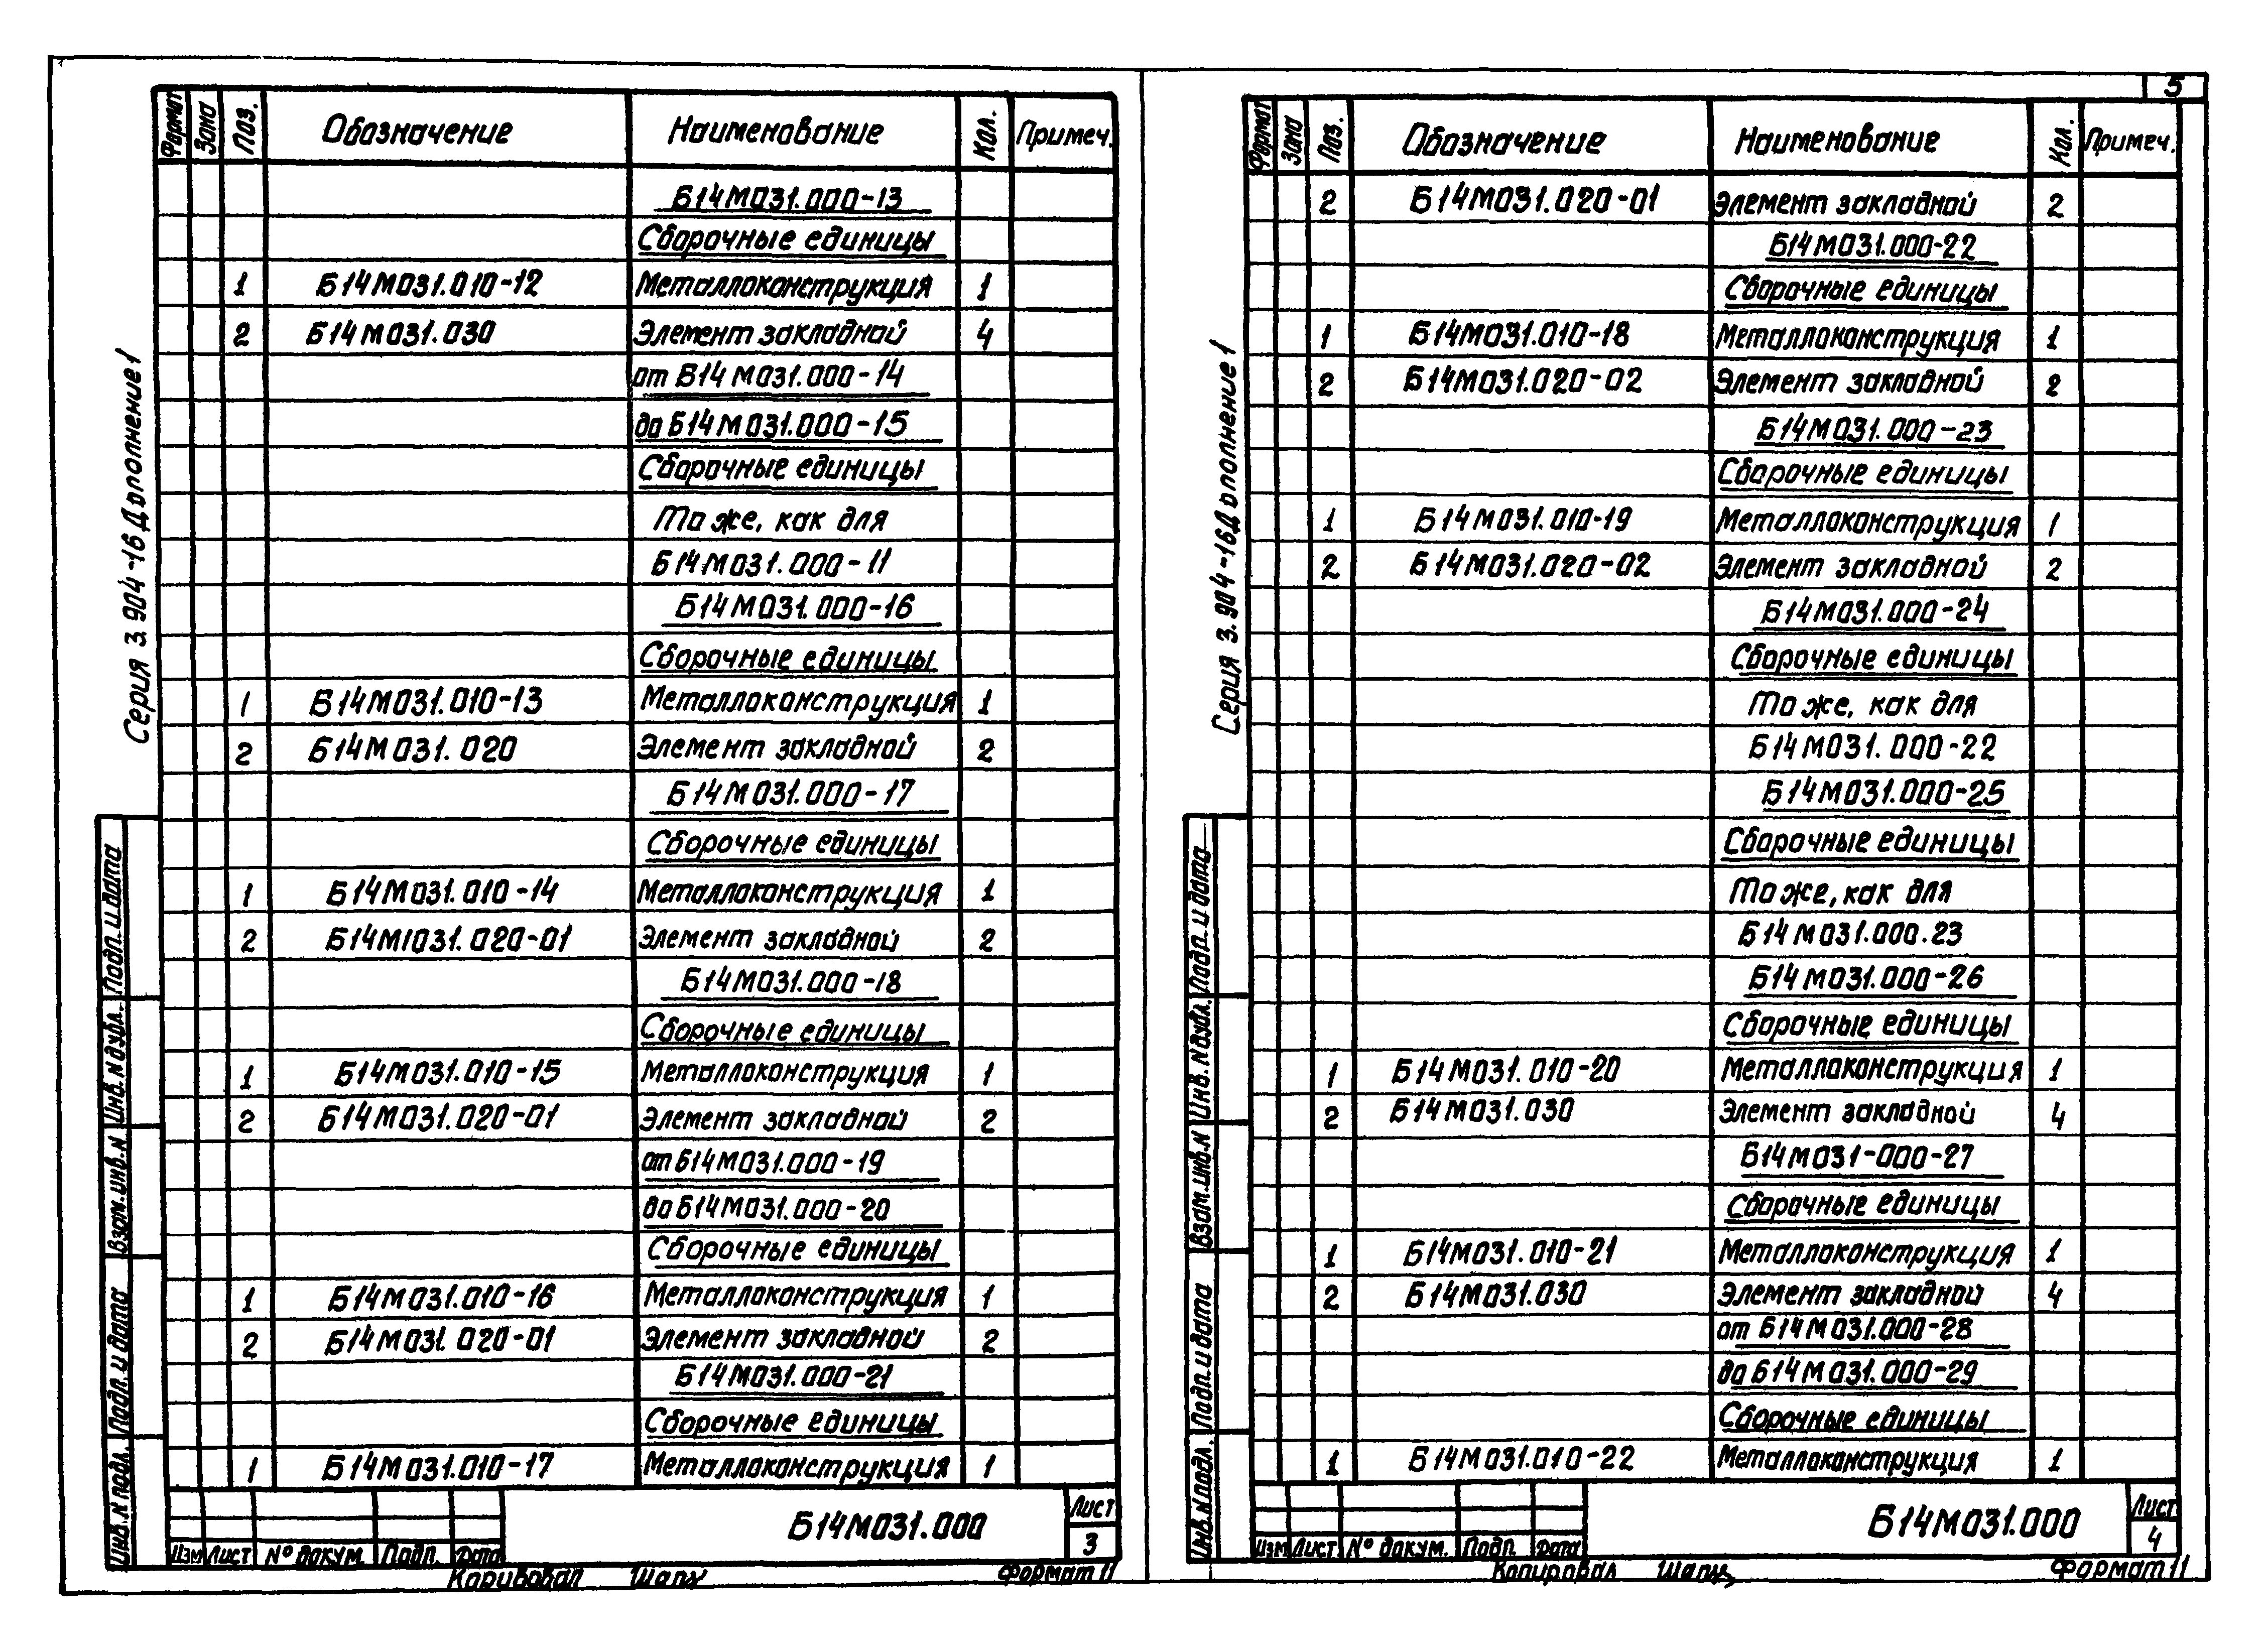 5
Серия 3.904-16 Дополнение 1
Формат Зона Поз. Обозначение Наименование Кол. Примеч.
Б14М031.000-13
Сборочные единицы
1 Б14М031.010-12 Металлоконструкция 1
2 Б14М031.030 Элемент закладной 4
от Б14М031.000-14
до Б14М031.000-15
Сборочные единицы
То же, как для
Б14М031.000-11
Б14М031.000-16
Сборочные единицы
1 Б14М031.010-13 Металлоконструкция 1
2 Б14М031.020 Элемент закладной 2
Б14М031.000-17
Сборочные единицы
1 Б14М031.010-14 Металлоконструкция 1
2 Б14М1031.020-01 Элемент закладной 2
Б14М031.000-18
Сборочные единицы
1 Б14М031.010-15 Металлоконструкция 1
2 Б14М031.020-01 Элемент закладной 2
от Б14М031.000-19
до Б14М031.000-20
Сборочные единицы
1 Б14М031.010-16 Металлоконструкция 1
2 Б14М031.020-01 Элемент закладной 2
Б14М031.000-21
Сборочные единицы
1 Б14М031.010-17 Металлоконструкция 1
Инв. N подл. Подп. и дата Взам. инв. N Инв. N дубл. Подп. и дата
Изм Лист N° докум. Подп. Дата
Б14М031.000
Лист
3
Копировал Шапх
Формат 11
Серия 3.904-16 Дополнение 1
Формат Зона Поз. Обозначение Наименование Кол. Примеч.
2 Б14М031.020-01 Элемент закладной 2
Б14М031.000-22
Сборочные единицы
1 Б14М031.010-18 Металлоконструкция 1
2 Б14М031.020-02 Элемент закладной 2
Б14М031.000-23
Сборочные единицы
1 Б14М031.010-19 Металлоконструкция 1
2 Б14М031.020-02 Элемент закладной 2
Б14М031.000-24
Сборочные единицы
То же, как для
Б14М031.000-22
Б14М031.000-25
Сборочные единицы
То же, как для
Б14М031.000.23
Б14М031.000-26
Сборочные единицы
1 Б14М031.010-20 Металлоконструкция 1
2 Б14М031.030 Элемент закладной 4
Б14М031-000-27
Сборочные единицы
1 Б14М031.010-21 Металлоконструкция 1
2 Б14М031.030 Элемент закладной 4
от Б14М031.000-28
до Б14М031.000-29
Сборочные единицы
1 Б14М031.010-22 Металлоконструкция 1
Инв. N подл. Подп. и дата Взам. инв. N Инв. N дубл. Подп. и дата
Изм Лист N° докум. Подп. Дата
Б14М031.000
Лист
4
Копировал
Формат 11